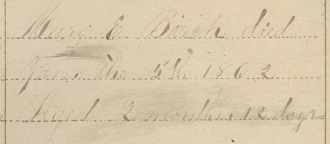 Mary E Birch died
Jan the 5th 1862
Aged 2 months 12 days